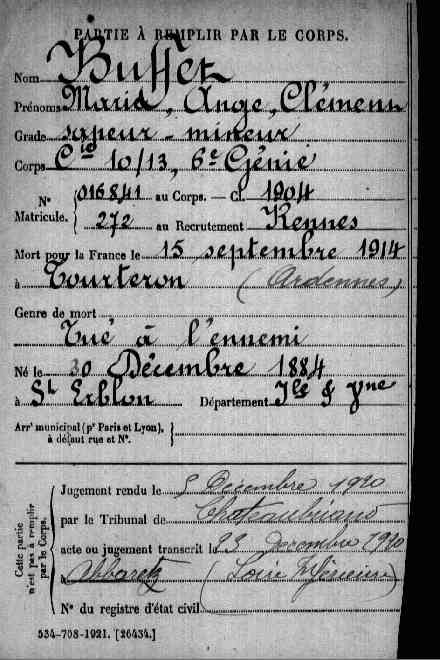 PARTIE À REMPLIR PAR LE CORPS.
Nom Buffet
Prénoms Maria, Ange, Clément
Grade sapeur-mineur
Corps Cie 10/13, 6e Génie
N° Matricule. 016841 au Corps. — Cl. 1904
272 au Recrutement Rennes
Mort pour la France le 15 septembre 1914
à Tourteron (Ardennes)
Genre de mort
Tué à l'ennemi
Né le 30 Décembre 1884
à St Erblon Département Ille & Vne
Arrt municipal (pr Paris et Lyon), à défaut rue et N°.
Cette partie n'est pas à remplir par le Corps.
Jugement rendu le 9 Décembre 1920
par le Tribunal de Chateaubriand
acte ou jugement transcrit le 23 Décembre 1920
à Abbaretz (Loire Inférieure)
N° du registre d'état civil
534-708-1921. [26434.]